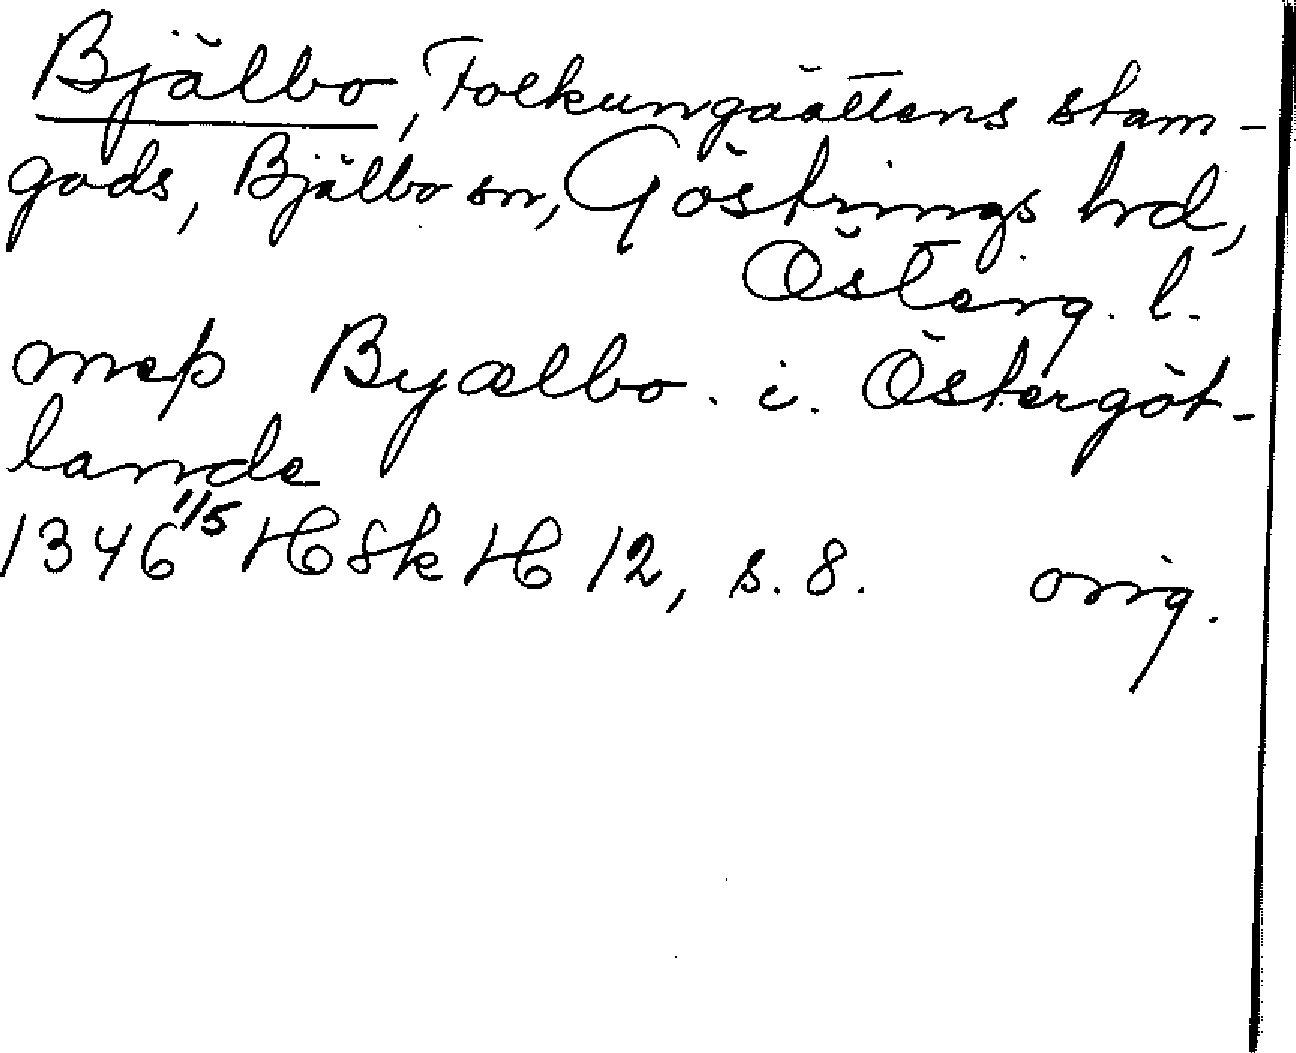 Bjälbo, Folkungaättens stam-
gods, Bjälbo sn, Göstrings hrd,
Österg. l.
meþ Byælbo . i . Östergöt-
lande
1346 1/5 HSkH 12, s. 8. orig.